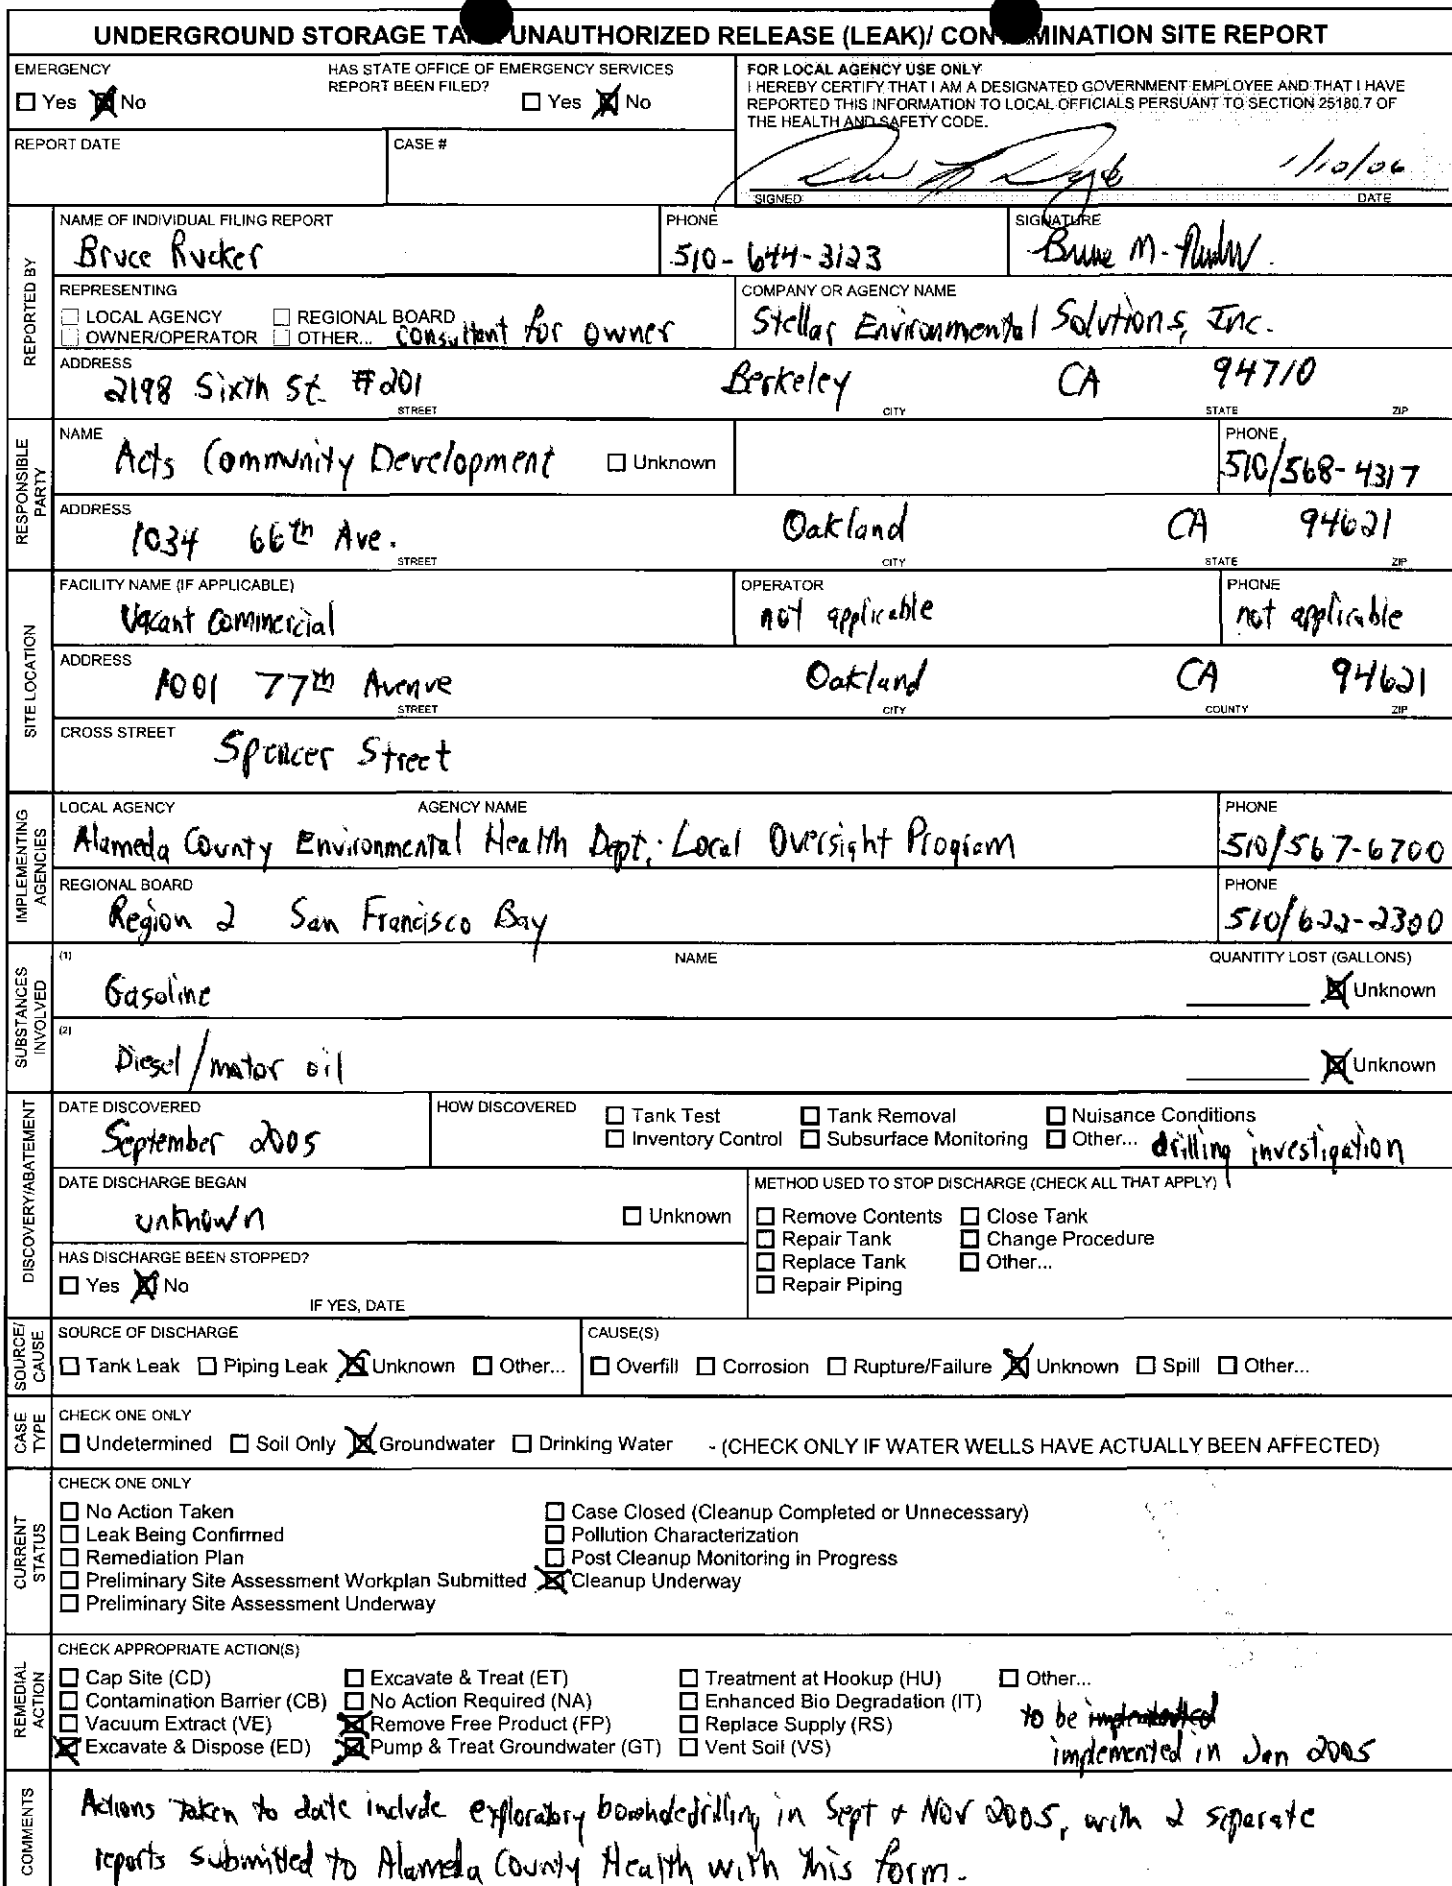 UNDERGROUND STORAGE TA UNAUTHORIZED RELEASE (LEAK)/ CON MINATION SITE REPORT
EMERGENCY
☐ Yes ☒ No
HAS STATE OFFICE OF EMERGENCY SERVICES
REPORT BEEN FILED?
☐ Yes ☒ No
FOR LOCAL AGENCY USE ONLY
I HEREBY CERTIFY THAT I AM A DESIGNATED GOVERNMENT EMPLOYEE AND THAT I HAVE
REPORTED THIS INFORMATION TO LOCAL OFFICIALS PURSUANT TO SECTION 25180.7 OF
THE HEALTH AND SAFETY CODE.
1/10/06
SIGNED DATE
REPORT DATE
CASE #
REPORTED BY
NAME OF INDIVIDUAL FILING REPORT
Bruce Rucker
PHONE
510-644-3123
SIGNATURE
Bruce M.
REPRESENTING
☐ LOCAL AGENCY ☐ REGIONAL BOARD
☐ OWNER/OPERATOR ☐ OTHER... consultant for owner
COMPANY OR AGENCY NAME
Stellar Environmental Solutions, Inc.
ADDRESS
2198 Sixth St. #201 Berkeley CA 94710
STREET CITY STATE ZIP
RESPONSIBLE
PARTY
NAME
Acts Community Development ☐ Unknown
PHONE
510/568-4317
ADDRESS
1034 66th Ave. Oakland CA 94621
STREET CITY STATE ZIP
SITE LOCATION
FACILITY NAME (IF APPLICABLE)
Vacant Commercial
OPERATOR
not applicable
PHONE
not applicable
ADDRESS
1001 77th Avenue Oakland CA 94621
STREET CITY COUNTY ZIP
CROSS STREET
Spencer Street
IMPLEMENTING
AGENCIES
LOCAL AGENCY AGENCY NAME
Alameda County Environmental Health Dept. · Local Oversight Program
PHONE
510/567-6700
REGIONAL BOARD
Region 2 San Francisco Bay
PHONE
510/622-2300
SUBSTANCES
INVOLVED
(1) NAME QUANTITY LOST (GALLONS)
Gasoline ☒ Unknown
(2)
Diesel/motor oil ☒ Unknown
DISCOVERY/ABATEMENT
DATE DISCOVERED
September 2005
HOW DISCOVERED
☐ Tank Test ☐ Tank Removal ☐ Nuisance Conditions
☐ Inventory Control ☐ Subsurface Monitoring ☐ Other... drilling investigation
DATE DISCHARGE BEGAN
unknown ☐ Unknown
METHOD USED TO STOP DISCHARGE (CHECK ALL THAT APPLY)
☐ Remove Contents ☐ Close Tank
☐ Repair Tank ☐ Change Procedure
☐ Replace Tank ☐ Other...
☐ Repair Piping
HAS DISCHARGE BEEN STOPPED?
☐ Yes ☒ No
IF YES, DATE
SOURCE/
CAUSE
SOURCE OF DISCHARGE
☐ Tank Leak ☐ Piping Leak ☒ Unknown ☐ Other...
CAUSE(S)
☐ Overfill ☐ Corrosion ☐ Rupture/Failure ☒ Unknown ☐ Spill ☐ Other...
CASE
TYPE
CHECK ONE ONLY
☐ Undetermined ☐ Soil Only ☒ Groundwater ☐ Drinking Water - (CHECK ONLY IF WATER WELLS HAVE ACTUALLY BEEN AFFECTED)
CURRENT
STATUS
CHECK ONE ONLY
☐ No Action Taken ☐ Case Closed (Cleanup Completed or Unnecessary)
☐ Leak Being Confirmed ☐ Pollution Characterization
☐ Remediation Plan ☐ Post Cleanup Monitoring in Progress
☐ Preliminary Site Assessment Workplan Submitted ☒ Cleanup Underway
☐ Preliminary Site Assessment Underway
REMEDIAL
ACTION
CHECK APPROPRIATE ACTION(S)
☐ Cap Site (CD) ☐ Excavate & Treat (ET) ☐ Treatment at Hookup (HU) ☐ Other...
☐ Contamination Barrier (CB) ☐ No Action Required (NA) ☐ Enhanced Bio Degradation (IT)
☐ Vacuum Extract (VE) ☒ Remove Free Product (FP) ☐ Replace Supply (RS)
☒ Excavate & Dispose (ED) ☒ Pump & Treat Groundwater (GT) ☐ Vent Soil (VS)
to be
implemented in Jan 2005
COMMENTS
Actions taken to date include exploratory borehole drilling in Sept & Nov 2005, with 2 separate
reports submitted to Alameda County Health with this form.